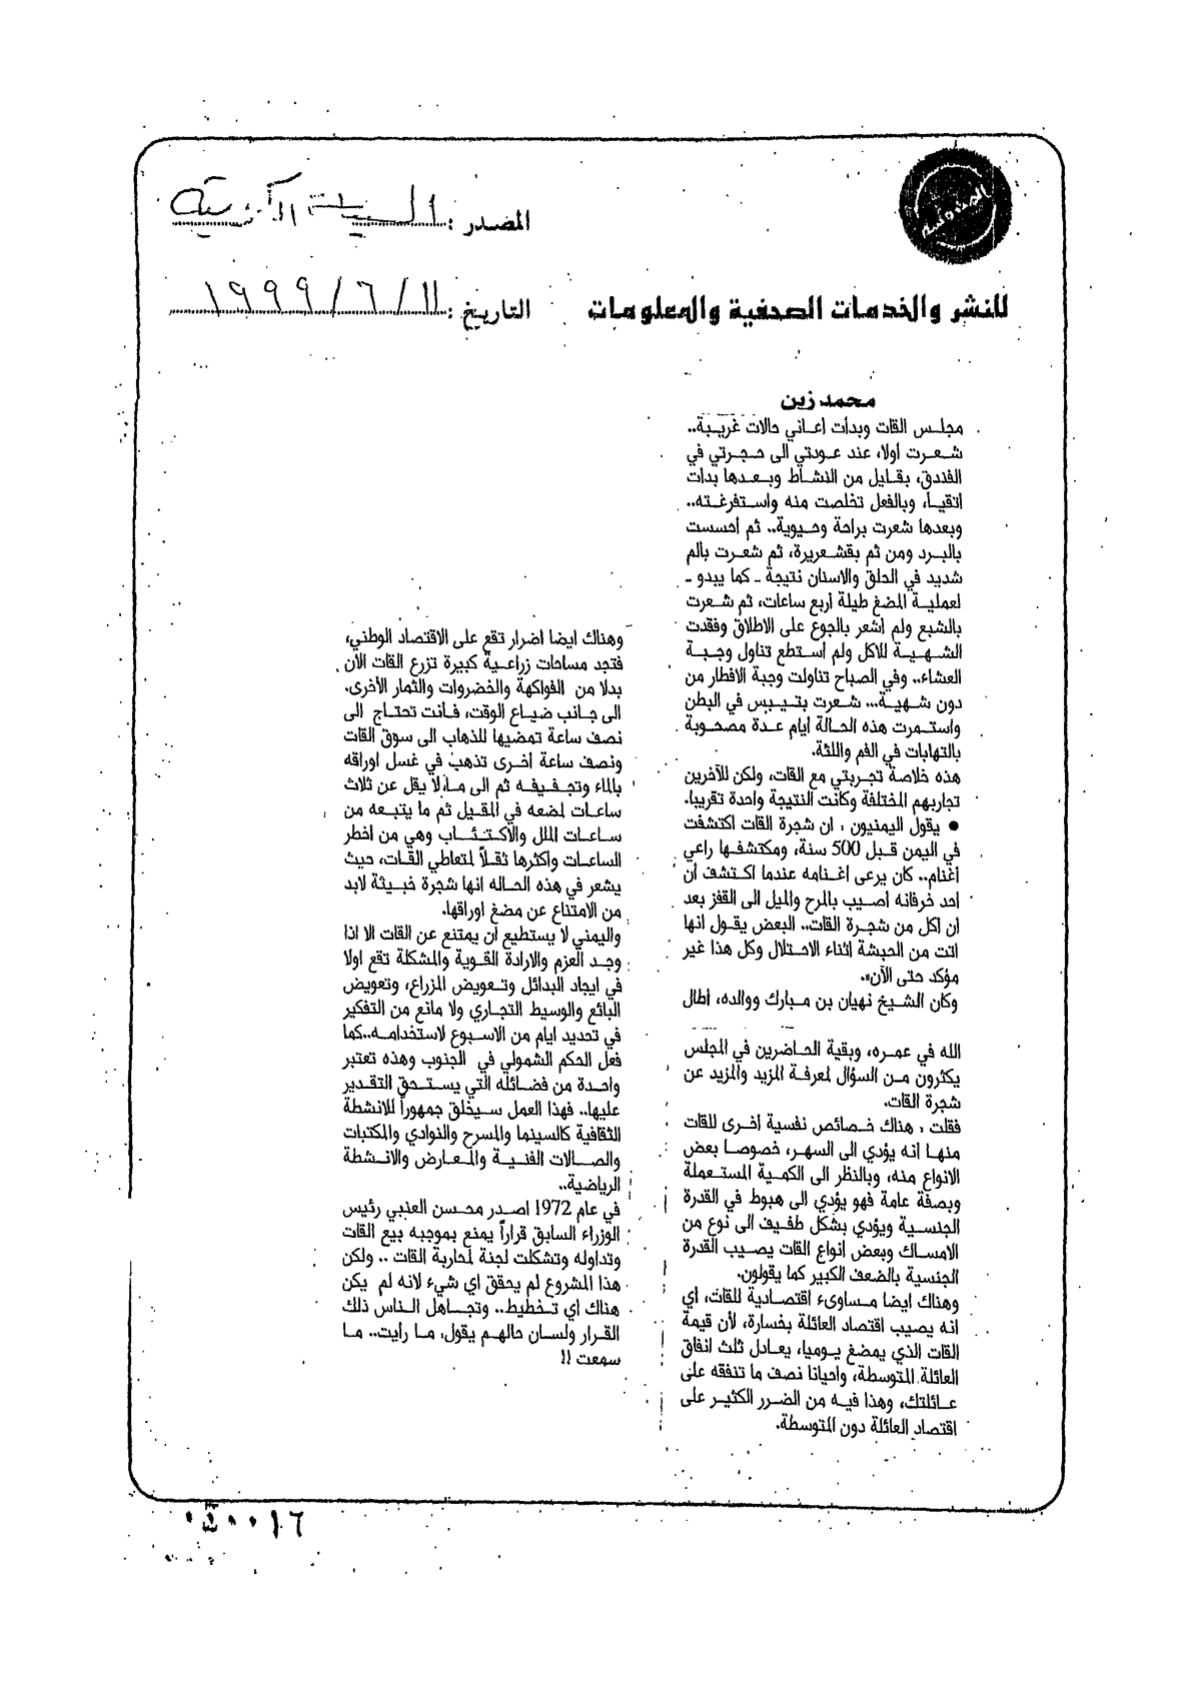 المصدر :
التاريخ : ١٩٩٩/٦/١١
للنشر والخدمات الصحفية والمعلومات
محمد زين
مجلس القات وبدأت أعاني حالات غريبة..
شعرت أولا، عند عودتي الى حجرتي في
الفندق، بقليل من النشاط وبعدها بدأت
اتقيأ، وبالفعل تخلصت منه واستفرغته..
وبعدها شعرت براحة وحيوية.. ثم أحسست
بالبرد ومن ثم بقشعريرة، ثم شعرت بألم
شديد في الحلق والاسنان نتيجة ـ كما يبدو ـ
لعملية المضغ طيلة أربع ساعات، ثم شعرت
بالشبع ولم أشعر بالجوع على الاطلاق وفقدت
الشهية للاكل ولم أستطع تناول وجبة
العشاء.. وفي الصباح تناولت وجبة الافطار من
دون شهية... شعرت بتيبس في البطن
واستمرت هذه الحالة أيام عدة مصحوبة
بالتهابات في الفم واللثة.
هذه خلاصة تجربتي مع القات، ولكن للآخرين
تجاربهم المختلفة وكانت النتيجة واحدة تقريبا.
● يقول اليمنيون : ان شجرة القات اكتشفت
في اليمن قبل 500 سنة، ومكتشفها راعي
أغنام.. كان يرعى أغنامه عندما اكتشف أن
أحد خرفانه اصيب بالمرح والميل الى القفز بعد
ان اكل من شجرة القات.. البعض يقول انها
اتت من الحبشة اثناء الاحتلال وكل هذا غير
مؤكد حتى الآن».
وكان الشيخ نهيان بن مبارك ووالده، أطال
الله في عمره، وبقية الحاضرين في المجلس
يكثرون من السؤال لمعرفة المزيد والمزيد عن
شجرة القات.
فقلت : هناك خصائص نفسية أخرى للقات
منها انه يؤدي الى السهر، خصوصا بعض
الانواع منه، وبالنظر الى الكمية المستعملة
وبصفة عامة فهو يؤدي الى هبوط في القدرة
الجنسية ويؤدي بشكل طفيف الى نوع من
الامساك وبعض انواع القات يصيب القدرة
الجنسية بالضعف الكبير كما يقولون.
وهناك ايضا مساوىء اقتصادية للقات، أي
انه يصيب اقتصاد العائلة بخسارة، لأن قيمة
القات الذي يمضغ يوميا، يعادل ثلث انفاق
العائلة المتوسطة، واحيانا نصف ما تنفقه على
عائلتك، وهذا فيه من الضرر الكثير على
اقتصاد العائلة دون المتوسطة.
وهناك ايضا اضرار تقع على الاقتصاد الوطني،
فتجد مساحات زراعية كبيرة تزرع القات الآن
بدلا من الفواكهة والخضروات والثمار الأخرى.
الى جانب ضياع الوقت، فأنت تحتاج الى
نصف ساعة تمضيها للذهاب الى سوق القات
ونصف ساعة اخرى تذهب في غسل اوراقه
بالماء وتجفيفه ثم الى ما لا يقل عن ثلاث
ساعات لمضغه في المقيل ثم ما يتبعه من
ساعات الملل والاكتئاب وهي من اخطر
الساعات واكثرها ثقلاً لمتعاطي القات، حيث
يشعر في هذه الحاله انها شجرة خبيثة لابد
من الامتناع عن مضغ اوراقها.
واليمني لا يستطيع أن يمتنع عن القات الا اذا
وجد العزم والارادة القوية والمشكلة تقع اولا
في ايجاد البدائل وتعويض المزراع، وتعويض
البائع والوسيط التجاري ولا مانع من التفكير
في تحديد ايام من الاسبوع لاستخدامه..كما
فعل الحكم الشمولي في الجنوب وهذه تعتبر
واحدة من فضائله التي يستحق التقدير
عليها.. فهذا العمل سيخلق جمهوراً للانشطة
الثقافية كالسينما والمسرح والنوادي والمكتبات
والصالات الفنية والمعارض والانشطة
الرياضية..
في عام 1972 اصدر محسن العنبي رئيس
الوزراء السابق قراراً يمنع بموجبه بيع القات
وتداوله وتشكلت لجنة لمحاربة القات .. ولكن
هذا المشروع لم يحقق اي شيء لانه لم يكن
هناك اي تخطيط.. وتجاهل الناس ذلك
القرار ولسان حالهم يقول: ما رأيت.. ما
سمعت !!